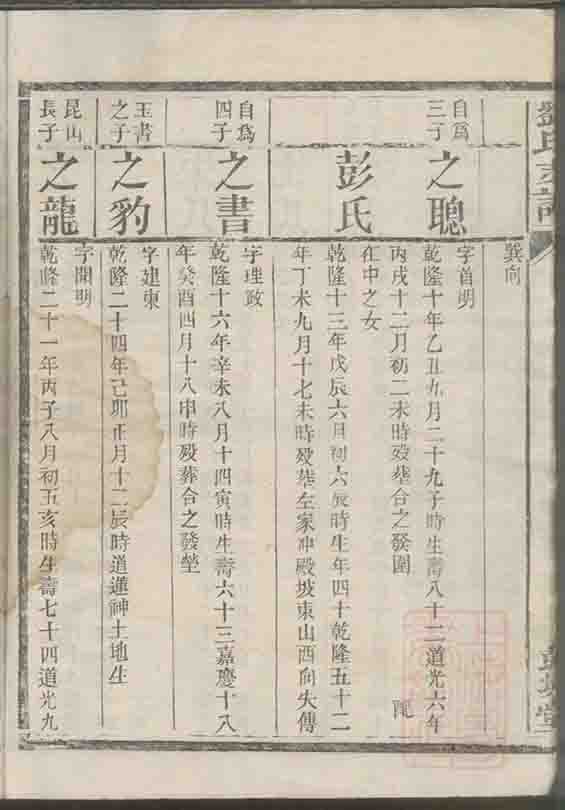 巽向
自爲
三子
之聰
字首明
乾隆十年乙丑九月二十九子時生壽八十二道光六年
丙戌十二月初二未時歿塟合之發園
彭氏
在中之女
乾隆十三年戊辰六月初六辰時生年四十乾隆五十二
年丁未九月十七未時歿塟左家冲殿坡東山西向失傳
自爲
四子
之書
字理政
乾隆十六年辛未八月十四寅時生壽六十三嘉慶十八
年癸酉四月十八申時歿葬合之發塋
玉書
之子
之豹
字建東
乾隆二十四年己卯正月十二辰時道蓮神土地生
昆山
長子
之龍
字開明
乾隆二十一年丙子八月初五亥時生壽七十四道光九